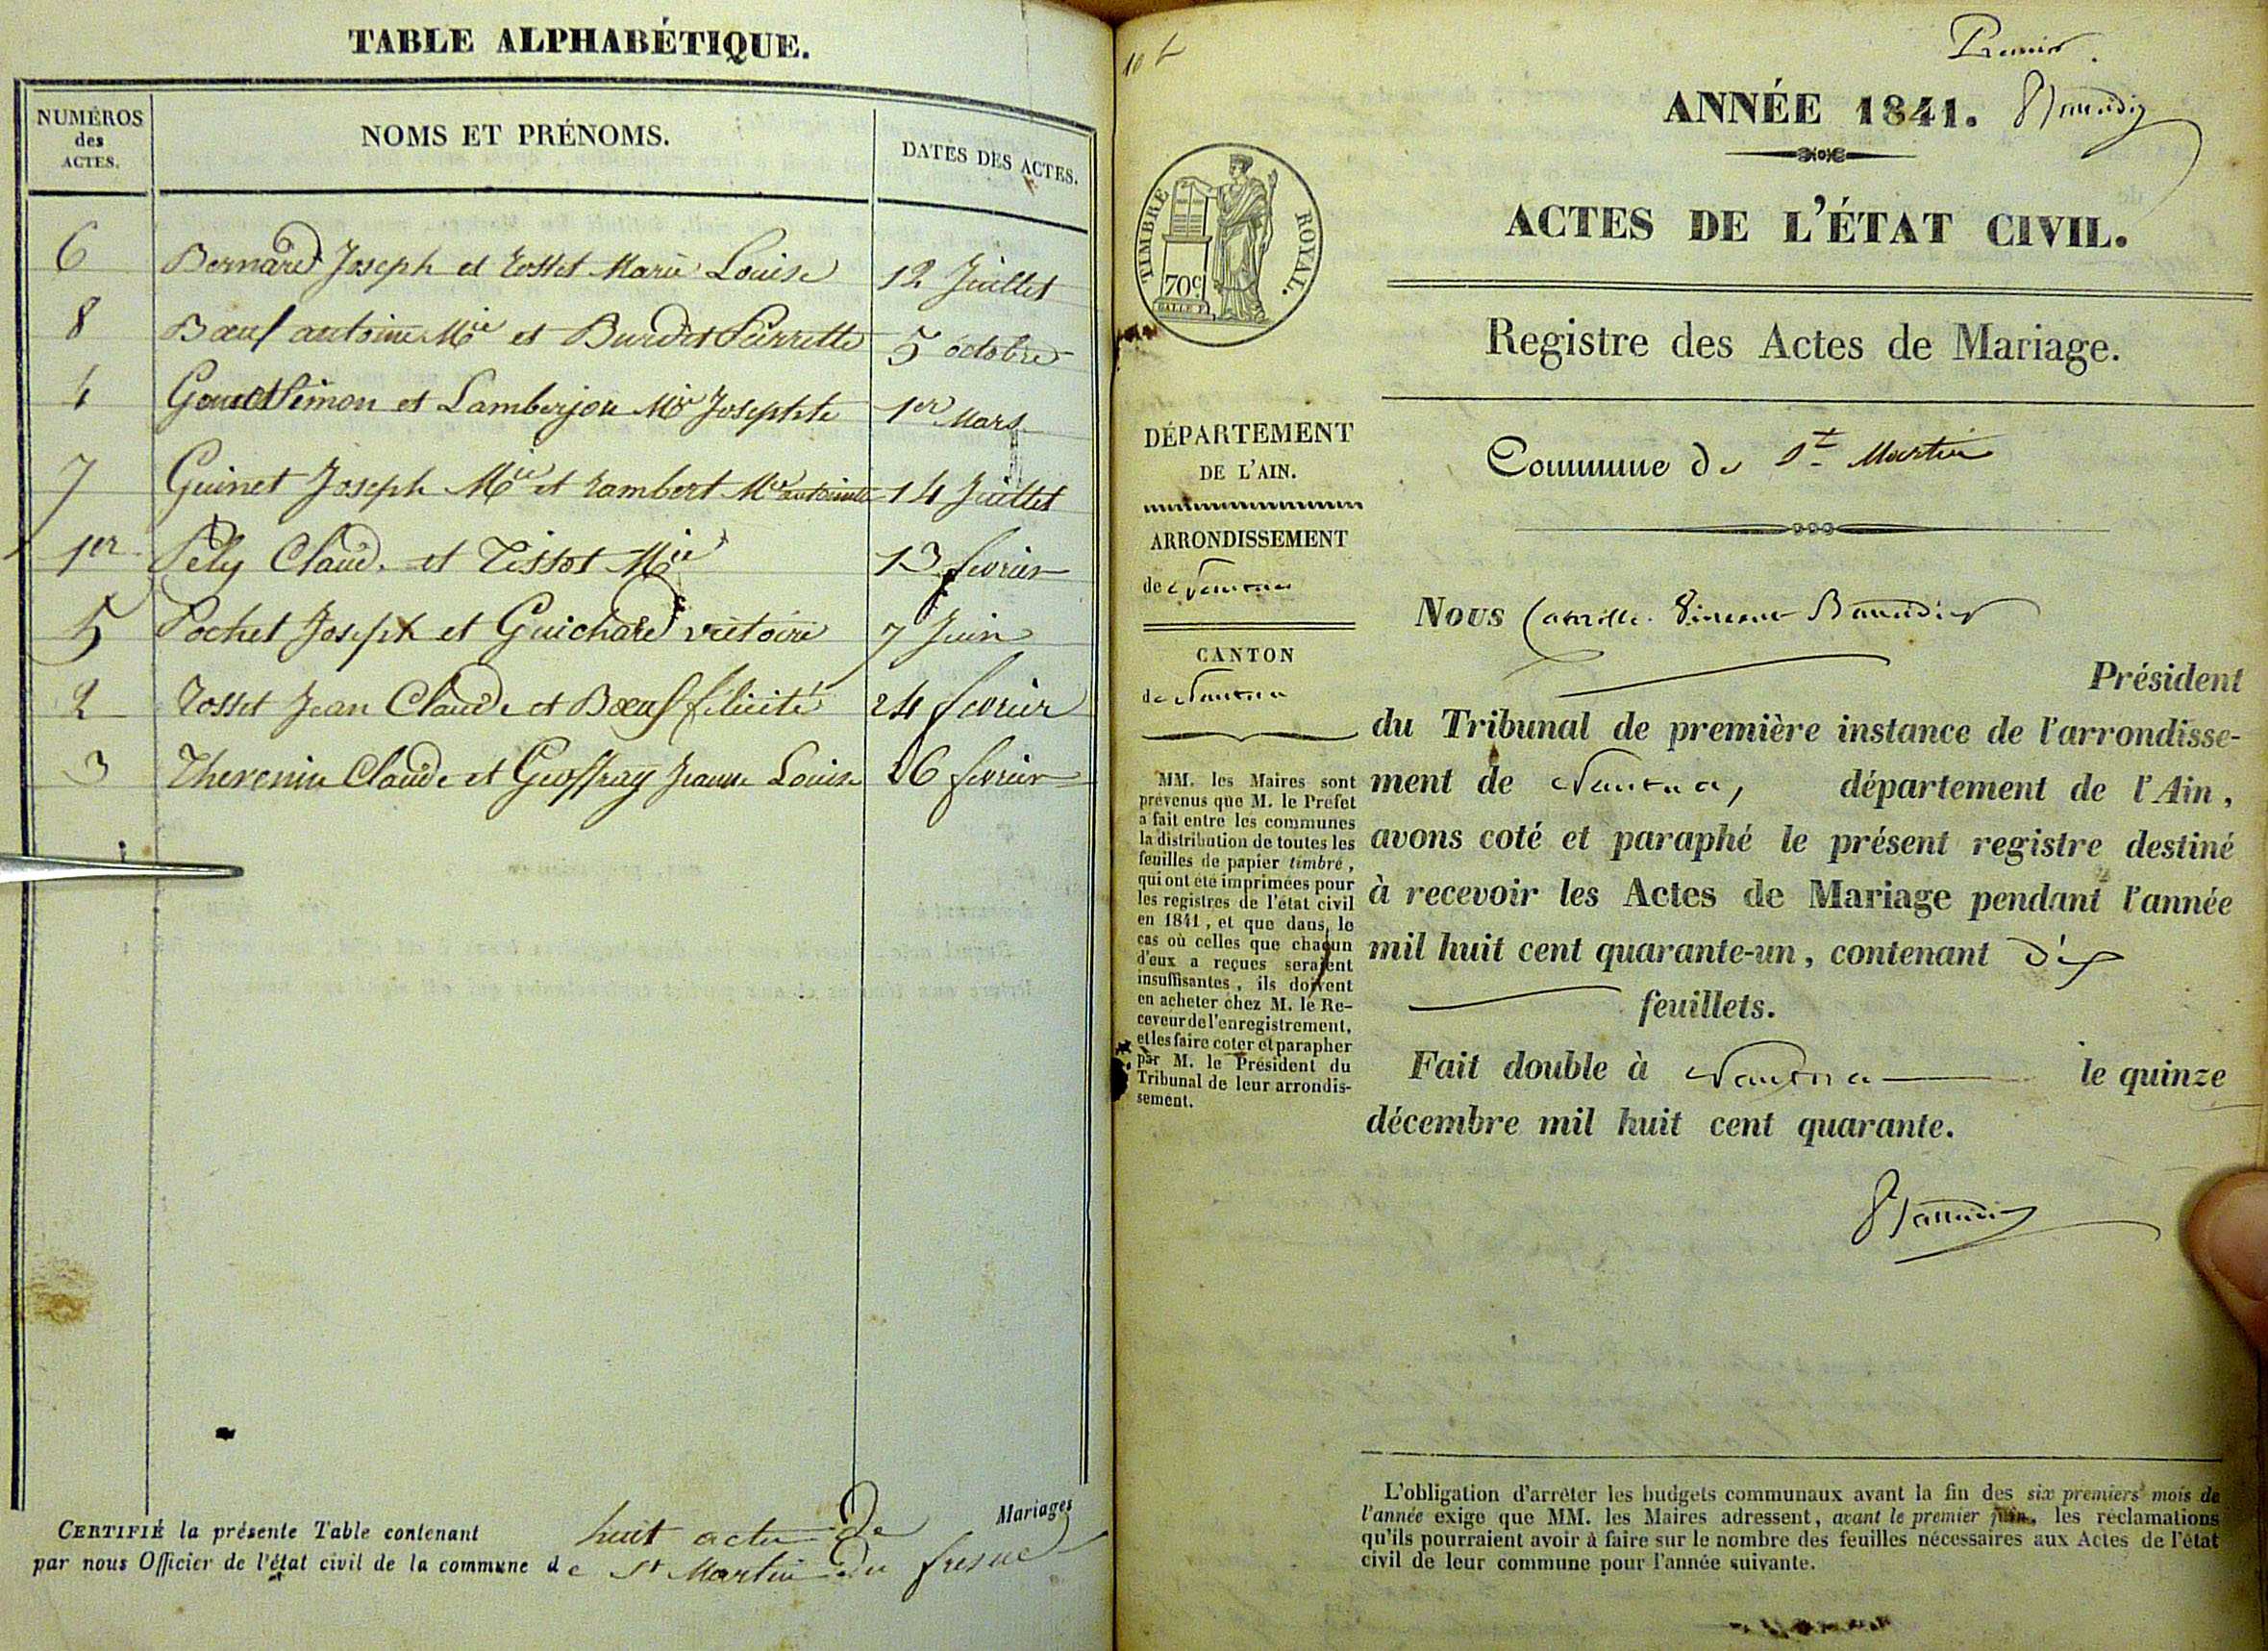 TABLE ALPHABÉTIQUE.
NUMÉROS
des
ACTES.
NOMS ET PRÉNOMS.
DATES DES ACTES.
6 Bernard Joseph et Rosset Marie Louise 12 Juillet
8 Bœuf antoine Mie et Burdet Pierrette 5 octobre
4 Simon et Lamberjon Mie Josephte 1er Mars
7 Guinet Joseph Mie et Lambert Mie antoinette 14 Juillet
1er Pély Claude et Tissot Mie 13 fevrier
5 Pochet Joseph et Guichard victoire 7 Juin
2 Rosset Jean Claude et Bœuf félicité 24 fevrier
3 Thevenin Claude et Geoffray Jeanne Louise 26 fevrier
Mariages
CERTIFIÉ la présente Table contenant huit actes de
par nous Officier de l'état civil de la commune de St Martin du fresne
10 f
Premier.
ANNÉE 1841.
TIMBRE ROYAL.
70c
GALLE F.
ACTES DE L'ÉTAT CIVIL.
Registre des Actes de Mariage.
DÉPARTEMENT
DE L'AIN.
Commune de St Martin
ARRONDISSEMENT
de Nantua
CANTON
de Nantua
MM. les Maires sont
prévenus que M. le Préfet
a fait entre les communes
la distribution de toutes les
feuilles de papier timbré,
qui ont été imprimées pour
les registres de l'état civil
en 1841, et que dans le
cas où celles que chacun
d'eux a reçues seraient
insuffisantes, ils doivent
en acheter chez M. le Re-
ceveur de l'enregistrement,
et les faire coter et parapher
par M. le Président du
Tribunal de leur arrondis-
sement.
Nous Camille Vincent
Président
du Tribunal de première instance de l'arrondisse-
ment de Nantua, département de l'Ain,
avons coté et paraphé le présent registre destiné
à recevoir les Actes de Mariage pendant l'année
mil huit cent quarante-un, contenant dix
feuillets.
Fait double à Nantua le quinze
décembre mil huit cent quarante.
L'obligation d'arrêter les budgets communaux avant la fin des six premiers mois de
l'année exige que MM. les Maires adressent, avant le premier juin, les réclamations
qu'ils pourraient avoir à faire sur le nombre des feuilles nécessaires aux Actes de l'état
civil de leur commune pour l'année suivante.